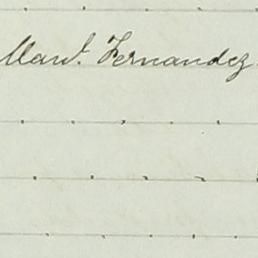 Manl. Fernandez